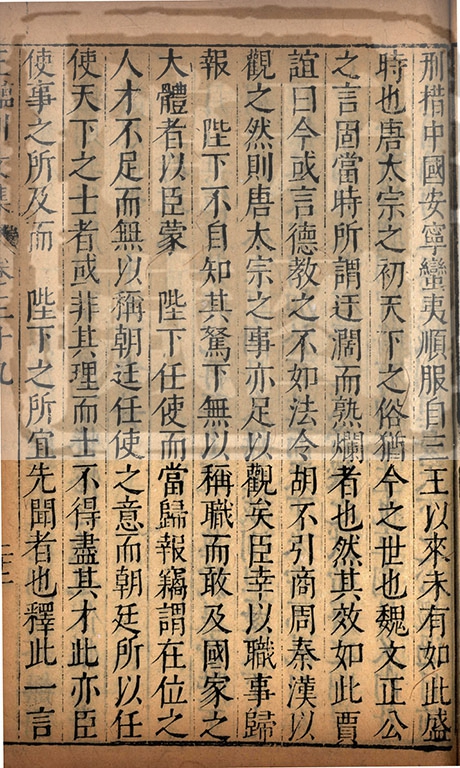 刑措中國安寧蠻夷順服自三王以來未有如此盛
時也唐太宗之初天下之俗猶今之世也魏文正公
之言固當時所謂迂濶而熟爛者也然其效如此賈
誼曰今或言德教之不如法令胡不引商周秦漢以
觀之然則唐太宗之事亦足以觀矣臣幸以職事歸
報 陛下不自知其駑下無以稱職而敢及國家之
大體者以臣蒙 陛下任使而當歸報竊謂在位之
人才不足而無以稱朝廷任使之意而朝廷所以任
使天下之士者或非其理而士不得盡其才此亦臣
使事之所及而 陛下之所宜先聞者也釋此一言
王臨川文集 卷三十九